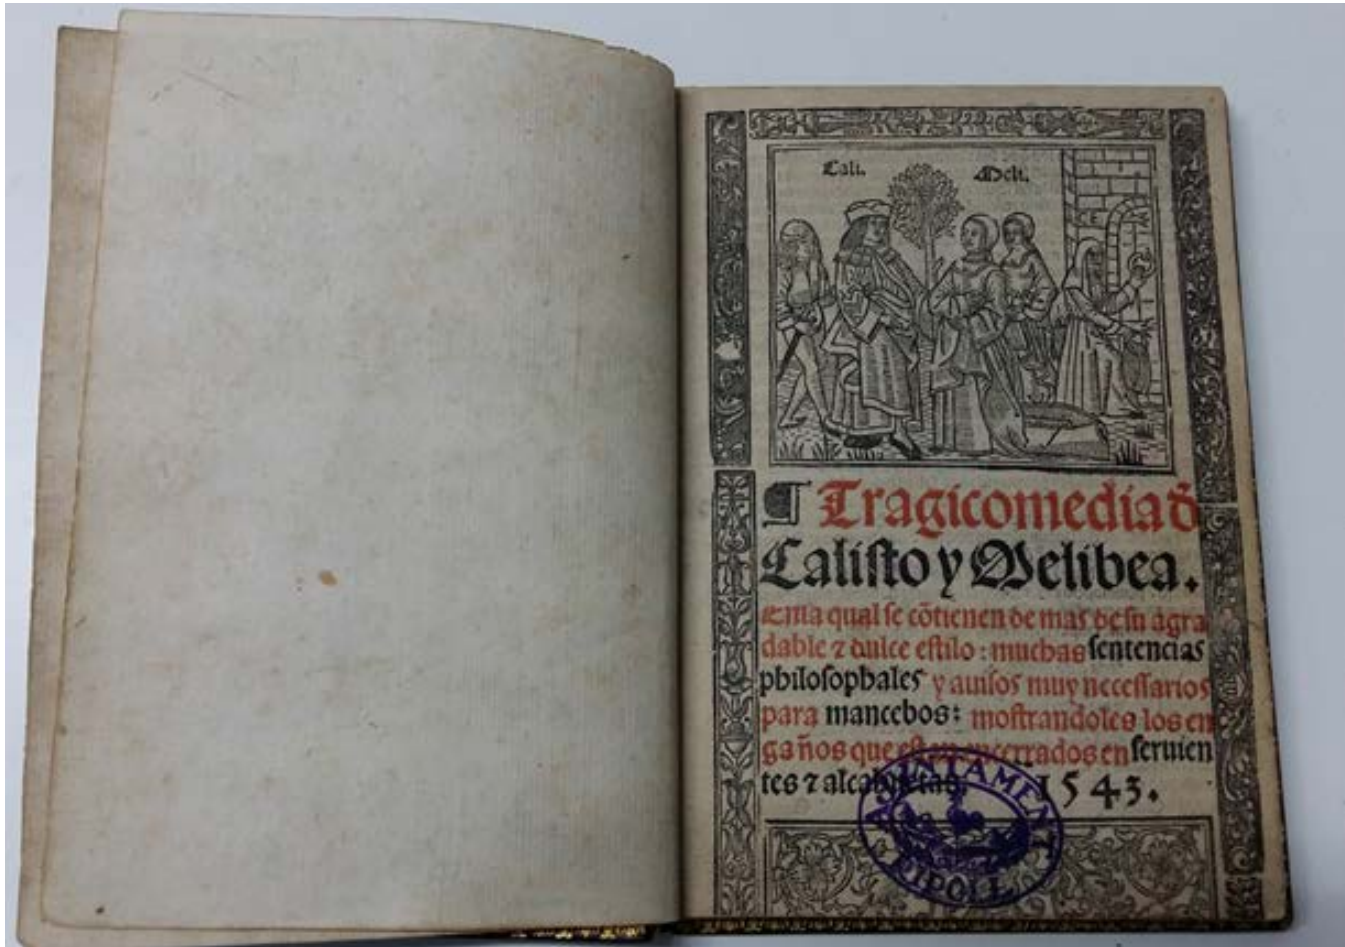 Cali. Meli.
¶ Tragicomedia đ
Calisto y Melibea.
Enla qual se cōtienen de mas de su agra
dable ⁊ dulce estilo: muchas sentencias
philosophales y auisos muy necessarios
para mancebos: mostrandoles los en
gaños que estan encerrados en seruien
tes ⁊ alcahuetas. 1543.
AJUNTAMENT
RIPOLL